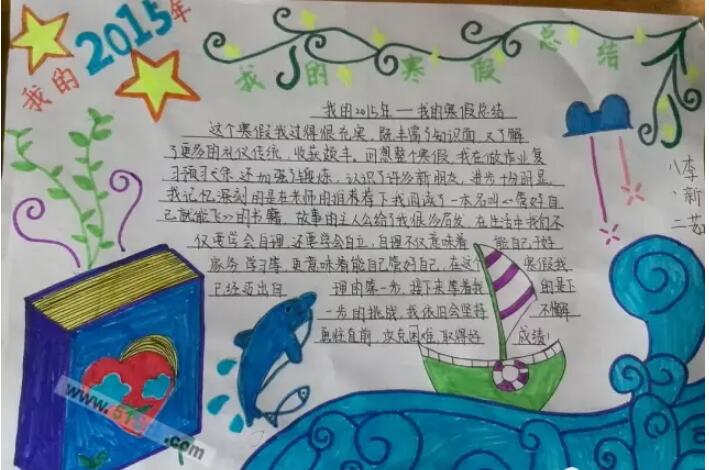 我的2015年
我的寒假总结
我的2015年——我的寒假总结
这个寒假我过得很充实,既丰富了知识面,又了解
了更多的礼仪传统,收获颇丰。回想整个寒假,我在做作业复
习预习之余,还加强了锻炼,认识了许多新朋友,进步十分明显。
我记忆深刻的是在老师的推荐荐下我阅读了一本名叫《管好自
己就能飞》的书籍,故事的主人公给了我很多启发,在生活中我们不
仅要学会自理,还要学会自立,自理不仅意味着 能自己好
家务 学习等,更意味着能自己管好自己,在这个 寒假我
已经迈出自 理的第一步,接下来等着我 的是下
一步的挑战,我依旧会坚持 不懈
勇往直前,攻克困难,取得好 成绩!
李新
八·二
www.51 .com